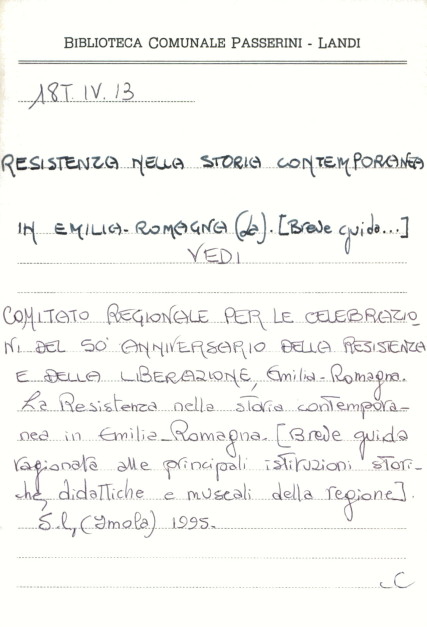 BIBLIOTECA COMUNALE PASSERINI - LANDI
18T. IV. 13
RESISTENZA NELLA STORIA CONTEMPORANEA
IN EMILIA-ROMAGNA (La). [Breve guida...]
VEDI
COMITATO REGIONALE PER LE CELEBRAZIO
NI DEL 50° ANNIVERSARIO DELLA RESISTENZA
E DELLA LIBERAZIONE, Emilia-Romagna.
La Resistenza nella storia contempora-
nea in Emilia-Romagna. [Breve guida
ragionata alle principali istituzioni stori-
che, didattiche e museali della regione].
S.l., (Imola) 1995.